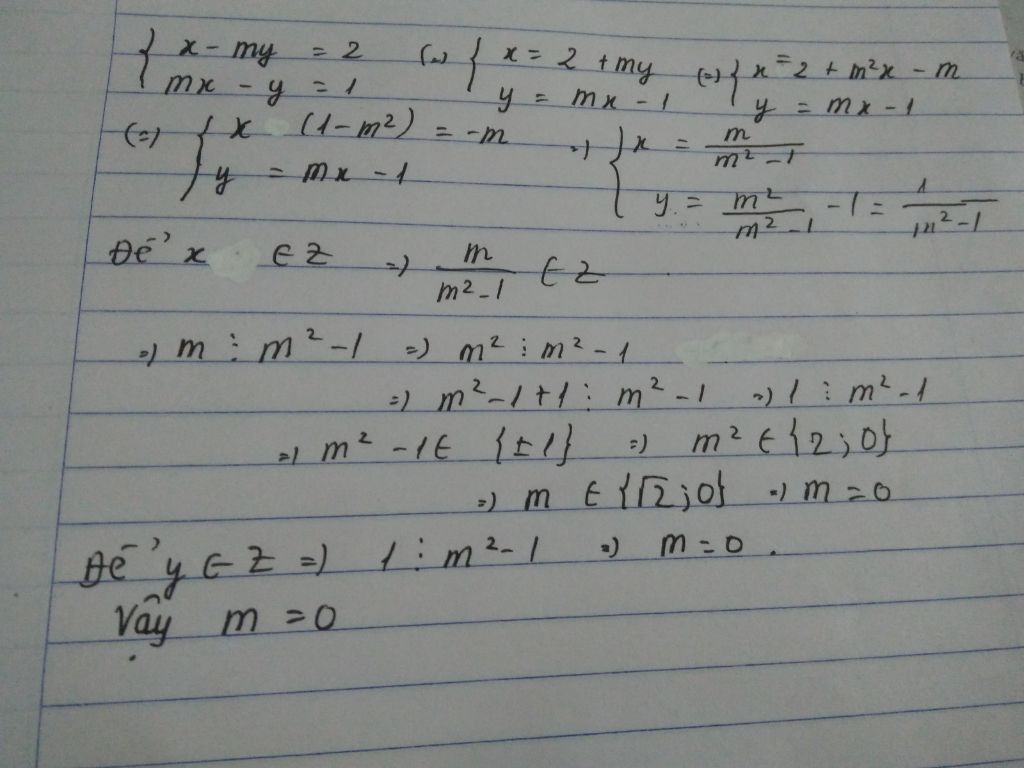 { x - my = 2 (=) { x = 2 + my (=) { x = 2 + m²x - m
mx - y = 1 y = mx - 1 y = mx - 1
(=) { x (1 - m²) = -m =) { x = m / m² - 1
y = mx - 1 y = m² / m² - 1 - 1 = 1 / m² - 1
Để x ∈ Z =) m / m² - 1 ∈ Z
=) m ⋮ m² - 1 =) m² ⋮ m² - 1
=) m² - 1 + 1 ⋮ m² - 1 =) 1 ⋮ m² - 1
=) m² - 1 ∈ {±1} =) m² ∈ {2; 0}
=) m ∈ {√2; 0} =) m = 0
Để y ∈ Z =) 1 ⋮ m² - 1 =) m = 0 .
Vậy m = 0